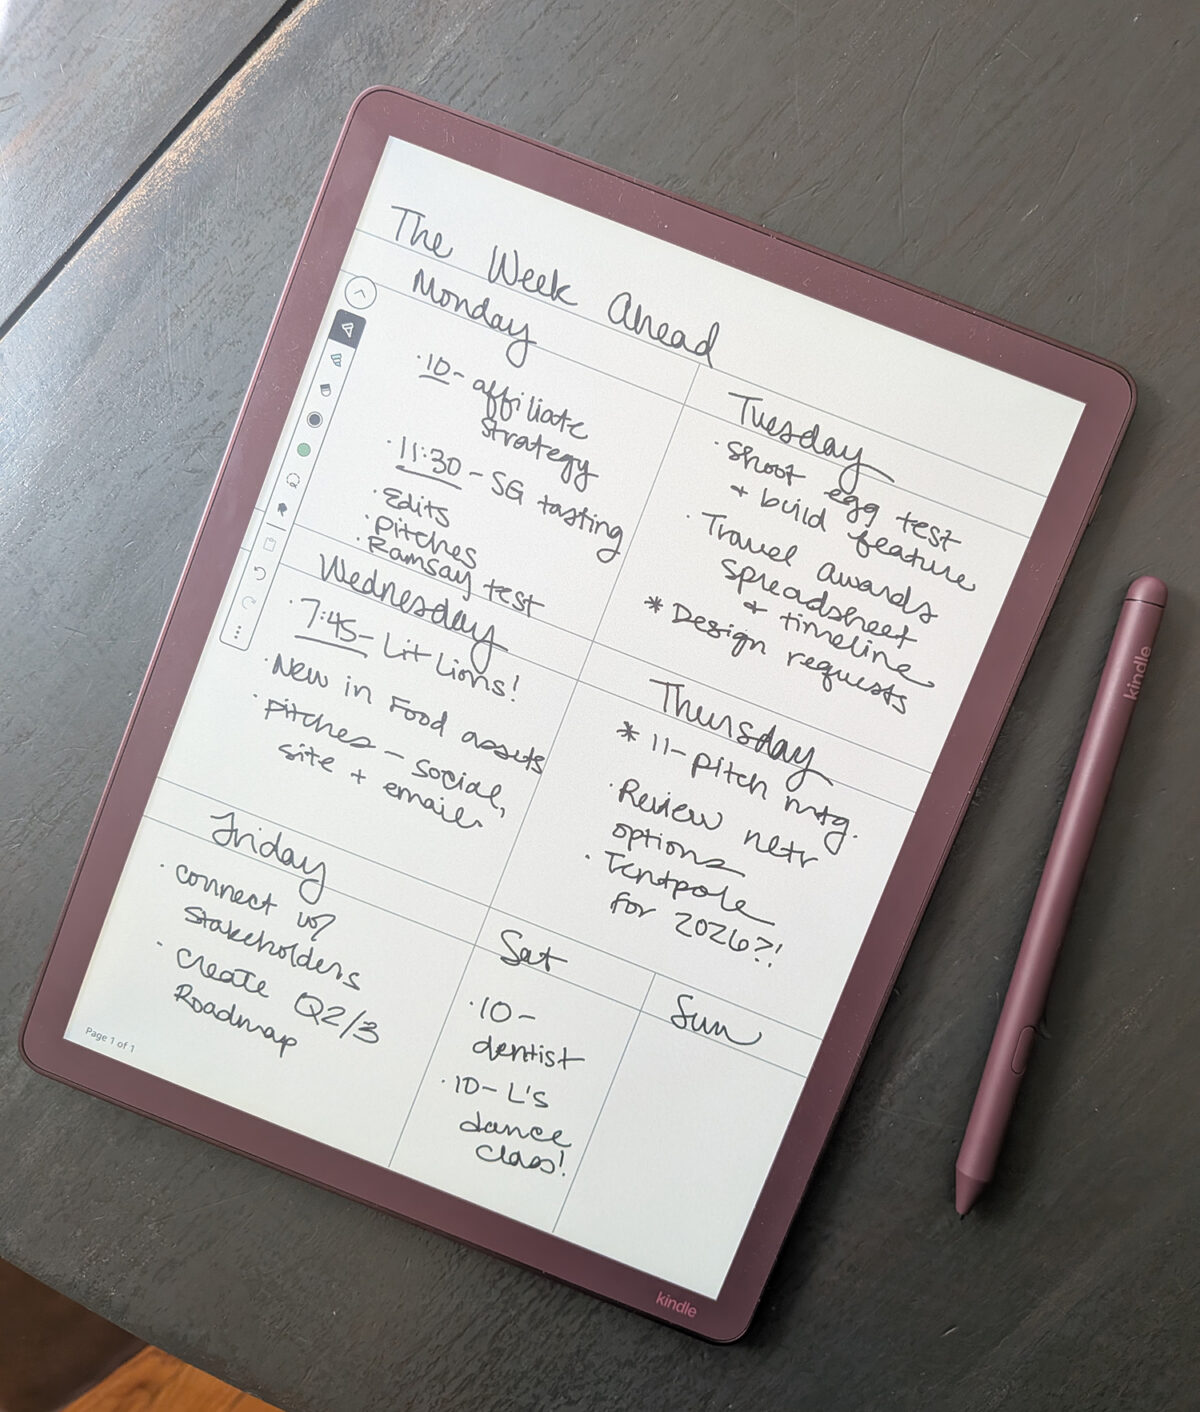 The Week Ahead
Monday
· 10 - affiliate
strategy
· 11:30 - SG tasting
· Edits
· Pitches
· Ramsay test
Tuesday
· Shoot egg test
+ build feature
· Travel awards
spreadsheet
+ timeline
* Design requests
Wednesday
· 7:45 - Lit Lions!
· New in Food assets
· Pitches - social,
site + email
Thursday
* 11 - pitch mtg.
· Review netr
options
· Tentpole
for 2026?!
Friday
· connect w/
stakeholders
· create Q2/3
Roadmap
Sat
· 10 -
dentist
· 10 - L's
dance
class!
Sun
Page 1 of 1
kindle
kindle